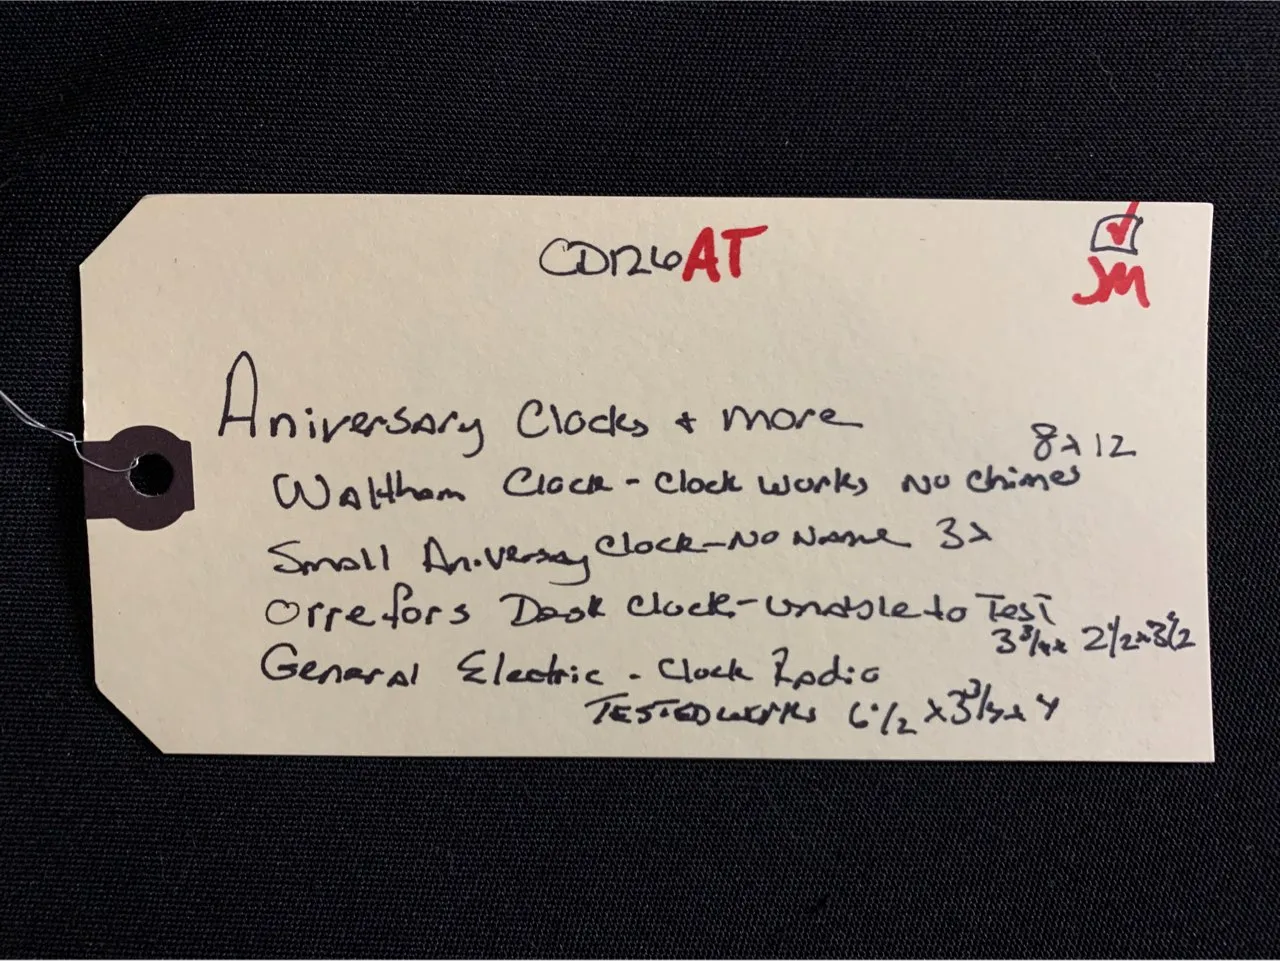 CD126AT
JM
Aniversary Clocks + more
8x12
Waltham Clock - Clock works No Chimes
Small Aniversay Clock-No Name 3x
Orrefors Desk Clock-unable to Test
3 3/4x 2 1/2x3 1/2
General Electric - Clock Radio
TESTED works 6 1/2 x 3 3/4 x 4